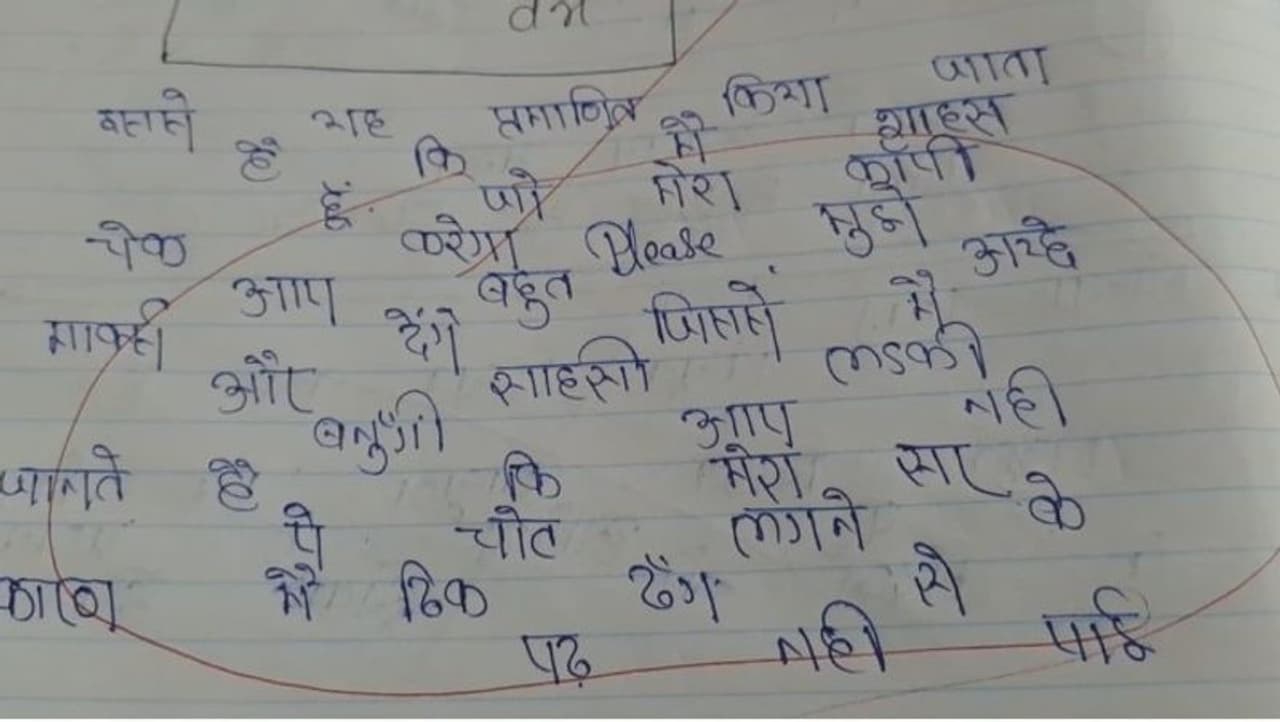 वम
इससे यह प्रमाणित किया जाता
है कि मै शाहस
हूँ. जो मेरा कॉपी
चेक करेगा Please मुझे
आप बहुत अच्छे
मार्क्स देंगे जिससे मै
और साहसी लडकी
बनुँगी आप नही
जानते है कि मेरा सर
पे चोट लगने के
कारण मै ठिक ढँग से
पढ़ नही पाई